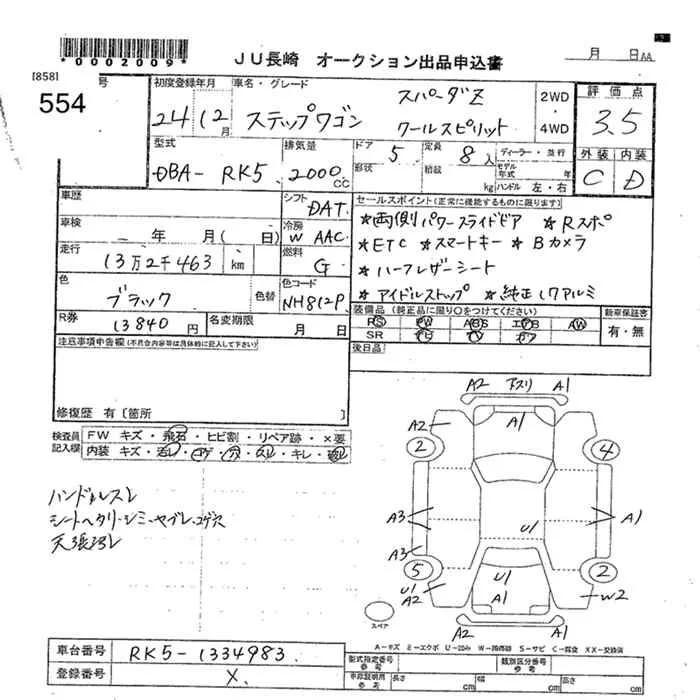 *0002009*
JU長崎 オークション出品申込書
月 日AA
[858]
号
554
初度登録年月
24 12月
車名・グレード
ステップワゴン
スパーダZ
クールスピリット
2WD
・
4WD
評価点
3.5
外装 内装
C D
型式
DBA- RK5
排気量
2000cc
ドア
5
形状
定員
8人
積載
kg
ディーラー・並行
モデル年式 年
ハンドル 左・右
車歴
車検
年 月(日)
走行
13万2千463 km
色
ブラック
色替
シフト
DAT
冷房
W AAC
燃料
G
色コード
NH812P
R券
13840円
名変期限
月 日
セールスポイント(正常に機能するものに限ります)
★両側パワースライドドア ★Rスポ
★ETC ★スマートキー ★Bカメラ
★ハーフレザーシート
★アイドルストップ ★純正17アルミ
装備品(純正品に限り○をつけてください)
RS PW ABS エアB AW
SR ナビ TV カワ
新車保証書
有・無
後日品
注意事項申告欄(不具合内容等は具体的に記入して下さい)
修復歴 有〔箇所 〕
検査員記入欄
FW キズ・飛石・ヒビ割・リペア跡・×要
内装 キズ・汚レ・コゲ・穴・スレ・キレ・破レ
ハンドルスレ
シートヘタリ・シミ・ヤブレ・コゲ穴
天張汚レ
A2 アスリ A1
A2 A1
2 4
A3 A1
U1
A3
5 2
U1
A2 U1
A1 W2
A2 A1
スペア
A-キズ E-エクボ U-凹み W-補修跡 S-サビ C-腐食 XX-交換済
車台番号
RK5-1334983
登録番号
X
型式指定番号
参考
類別区分番号
参考
車庫証明用
参考
長さ cm
幅 cm
高さ cm